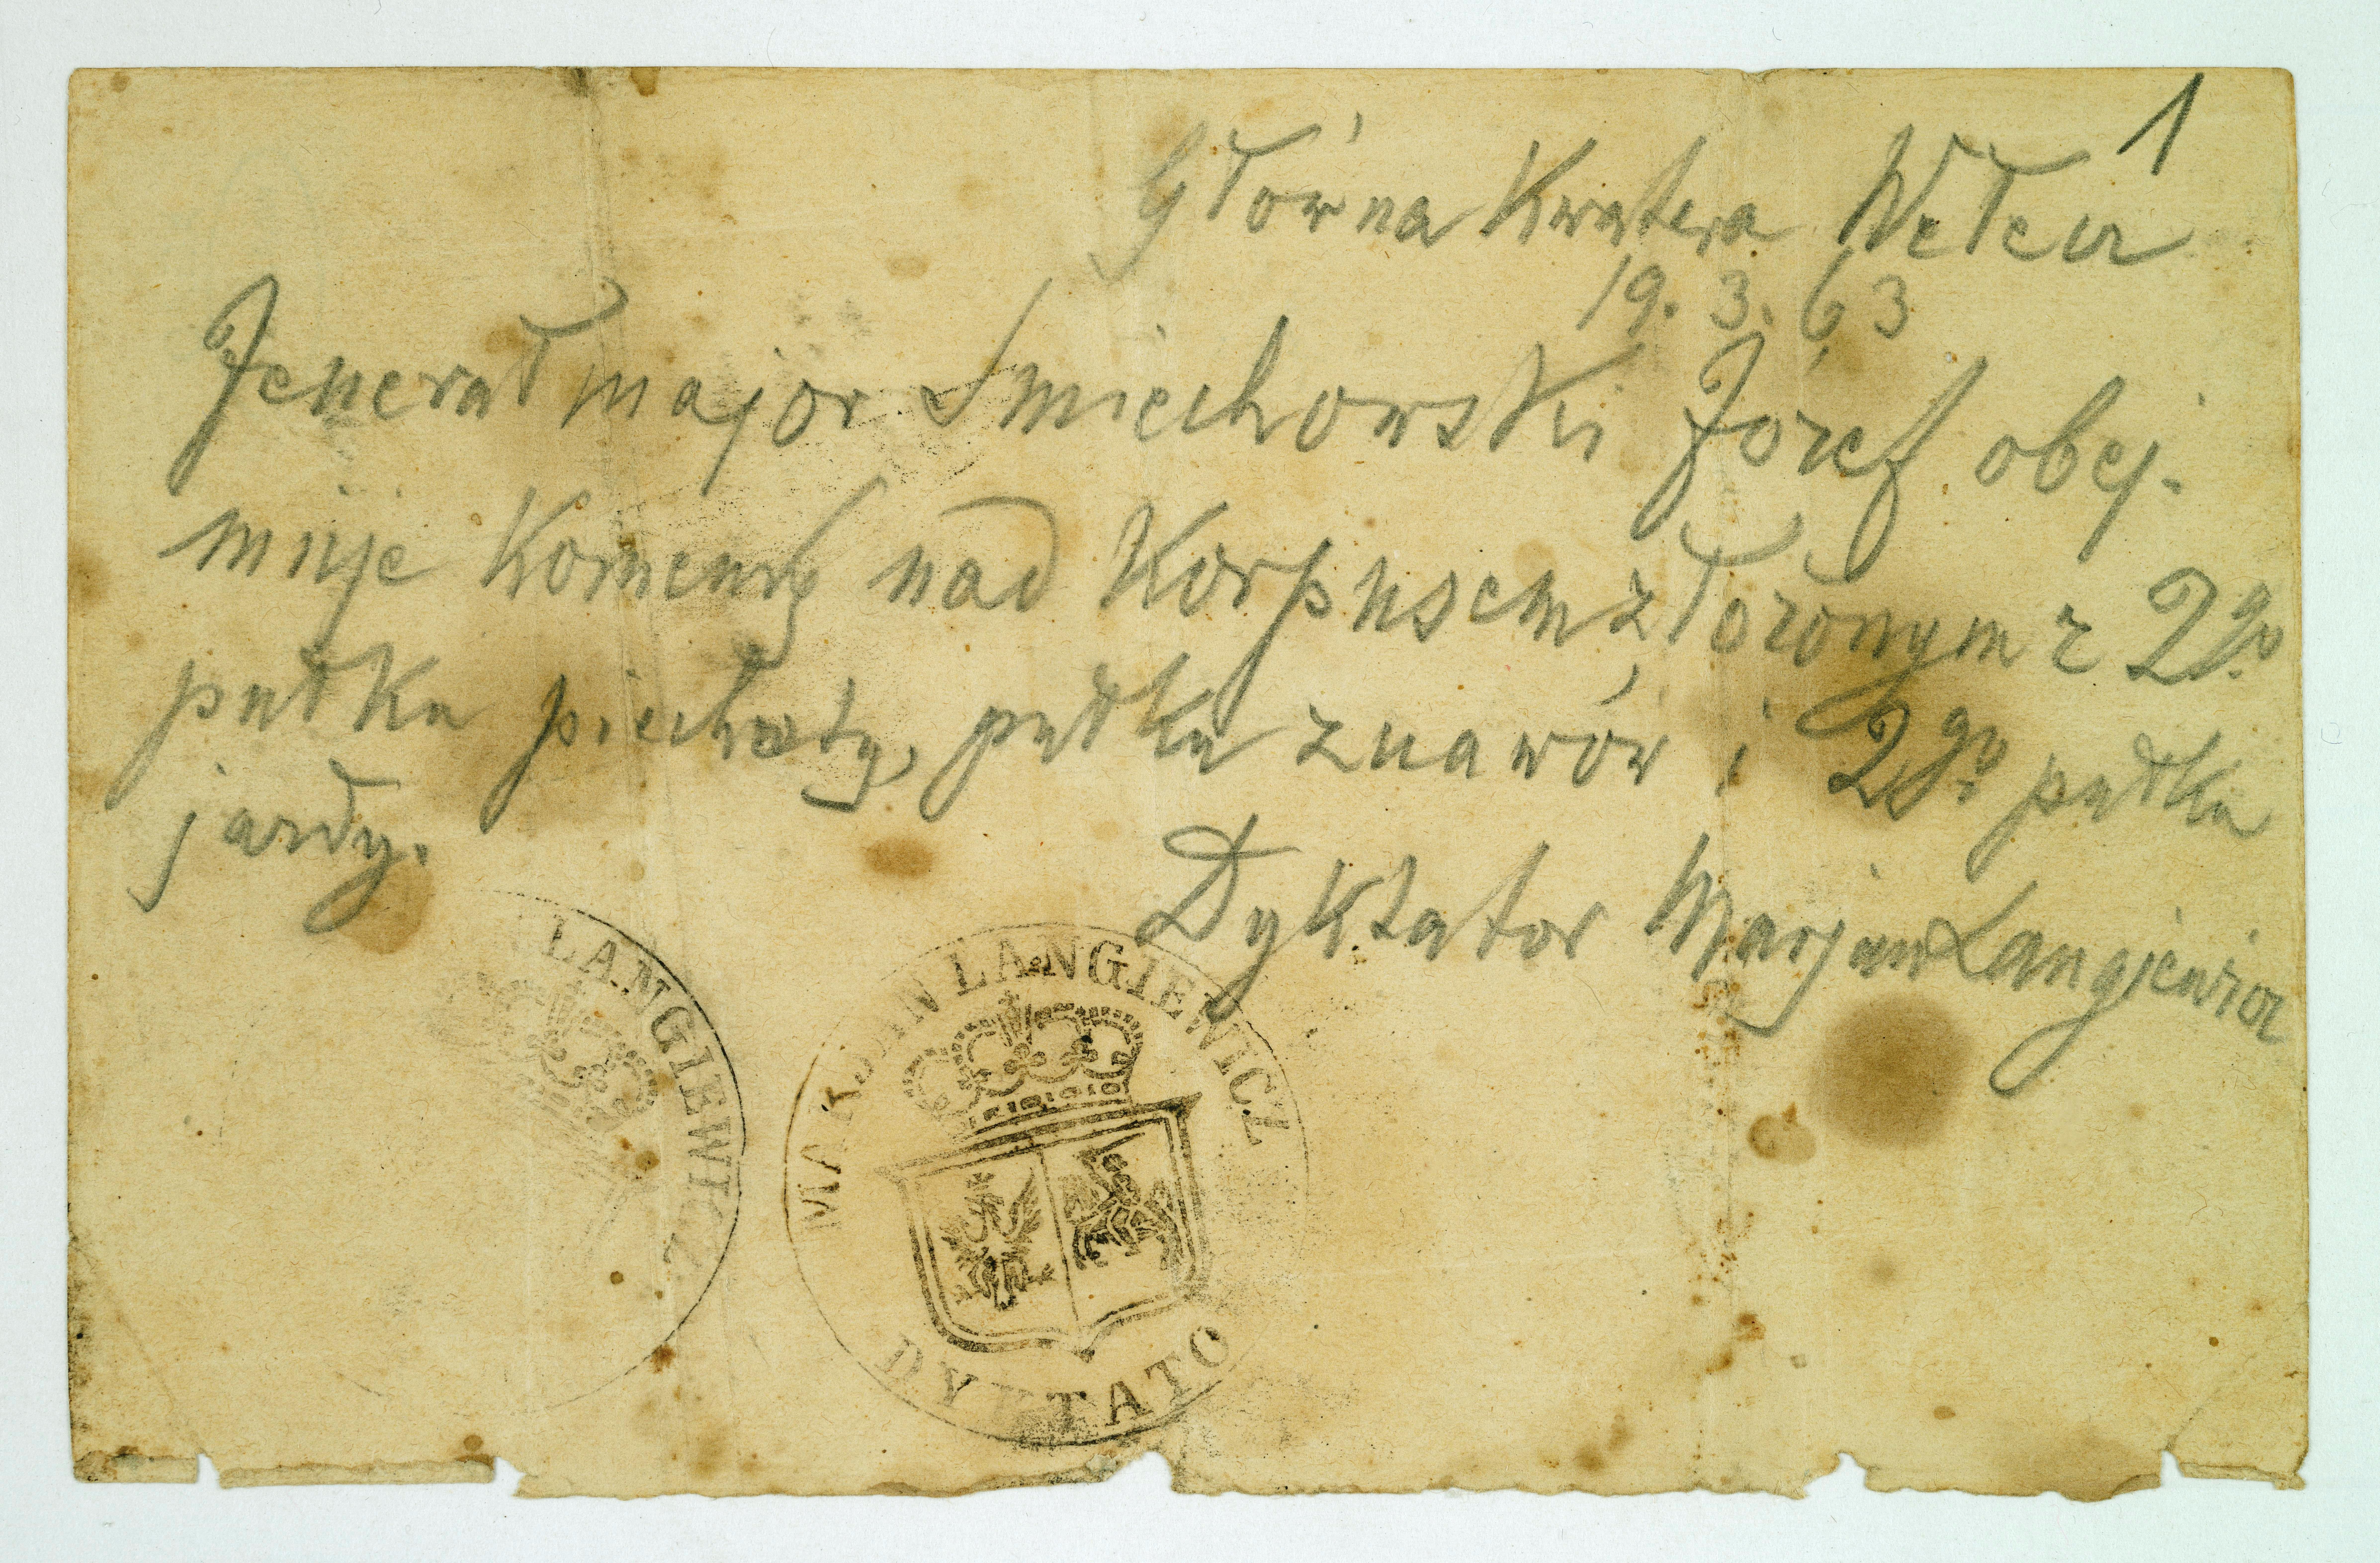 1
Główna Kwatera Wełecz
19. 3. 63
Jenerał major Smiechowski Józef obej-
muje Komendę nad Korpusem złożonym z 2go
pułku piechoty, pułku żuawów i 2go pułku
jazdy.
Dyktator Marjan Langiewicz
LANGIEWICZ
MARJAN LANGIEWICZ
DYKTATO